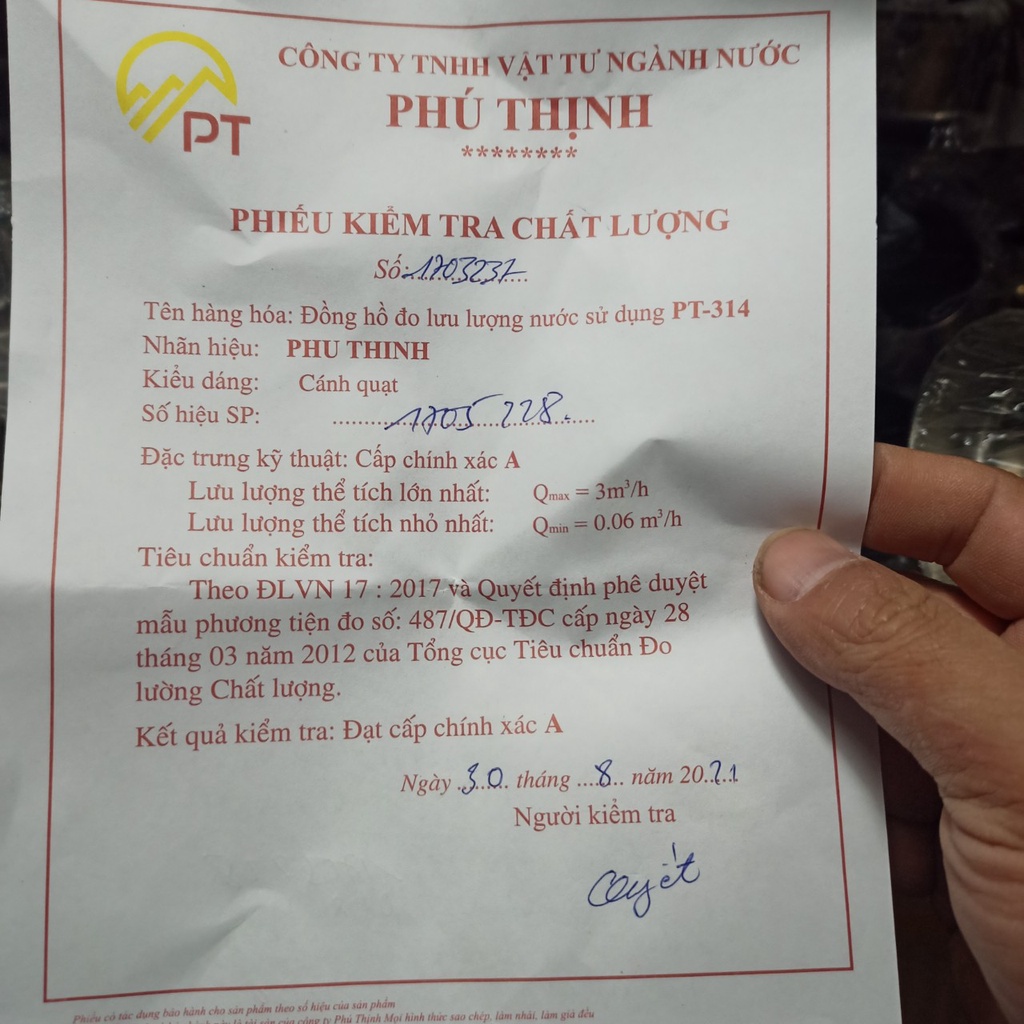 PT
CÔNG TY TNHH VẬT TƯ NGÀNH NƯỚC
PHÚ THỊNH
********
PHIẾU KIỂM TRA CHẤT LƯỢNG
Số: 1703237
Tên hàng hóa: Đồng hồ đo lưu lượng nước sử dụng PT-314
Nhãn hiệu: PHU THINH
Kiểu dáng: Cánh quạt
Số hiệu SP: 1705228.
Đặc trưng kỹ thuật: Cấp chính xác A
Lưu lượng thể tích lớn nhất: Qmax = 3m³/h
Lưu lượng thể tích nhỏ nhất: Qmin = 0.06 m³/h
Tiêu chuẩn kiểm tra:
Theo ĐLVN 17 : 2017 và Quyết định phê duyệt
mẫu phương tiện đo số: 487/QĐ-TĐC cấp ngày 28
tháng 03 năm 2012 của Tổng cục Tiêu chuẩn Đo
lường Chất lượng.
Kết quả kiểm tra: Đạt cấp chính xác A
Ngày 30 tháng 8 năm 2021
Người kiểm tra
Quyết
Phiếu có tác dụng bảo hành cho sản phẩm theo số hiệu của sản phẩm
là tài sản của công ty Phú Thịnh Mọi hình thức sao chép, làm nhái, làm giả đều